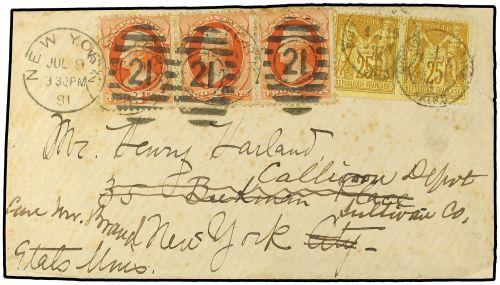 NEW YORK
JUL 9
330PM
81
21 21 21
25 25
Mr. Henry Harland
Callicoon Depot
35 Beekman Place
Sullivan Co.
Care Mr. Brand New York City.
Etats Unis